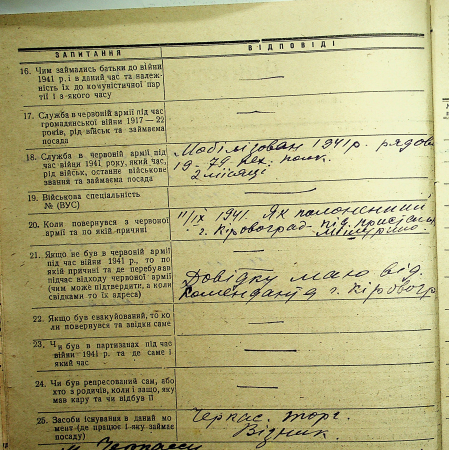 ЗАПИТАННЯ
ВІДПОВІДІ
16. Чим займались батьки до війни
1941 р. і в даний час та належ-
ність їх до комуністичної пар-
тії і з якого часу
17. Служба в червоній армії під час
громадянської війни 1917 — 22
років, рід військ та займаєма
посада
18. Служба в червоній армії під
час війни 1941 року, який час,
рід військ, останнє військове
звання та займаєма посада
Мобілізован 1941 р. рядов
19-79 пех. полк.
2 місяці
19. Військова спеціальність
№ (ВУС)
20. Коли повернувся з червоної
армії та по якій причині
11/ІХ 1941. Як полоненний
г. Кіровоград під
21. Якщо не був в червоній армії
під час війни 1941 р., то по
якій причині та де перебував
підчас відходу червоної армії
(чим може підтвердити, а коли
свідками то їх адреса)
Довідку маю від
Коменданта г. Кіровогр
22. Якщо був евакуйований, то ко-
ли повернувся та звідки саме
23. Чи був в партизанах під час
війни 1941 р. та де саме і
який час
24. Чи був репресований сам, або
хто з родичів, коли і защо, яку
мав кару та чи відбув її
25. Засоби існування в даний мо-
мент (де працює і яку займає
посаду)
Черкас. торг.
Візник.